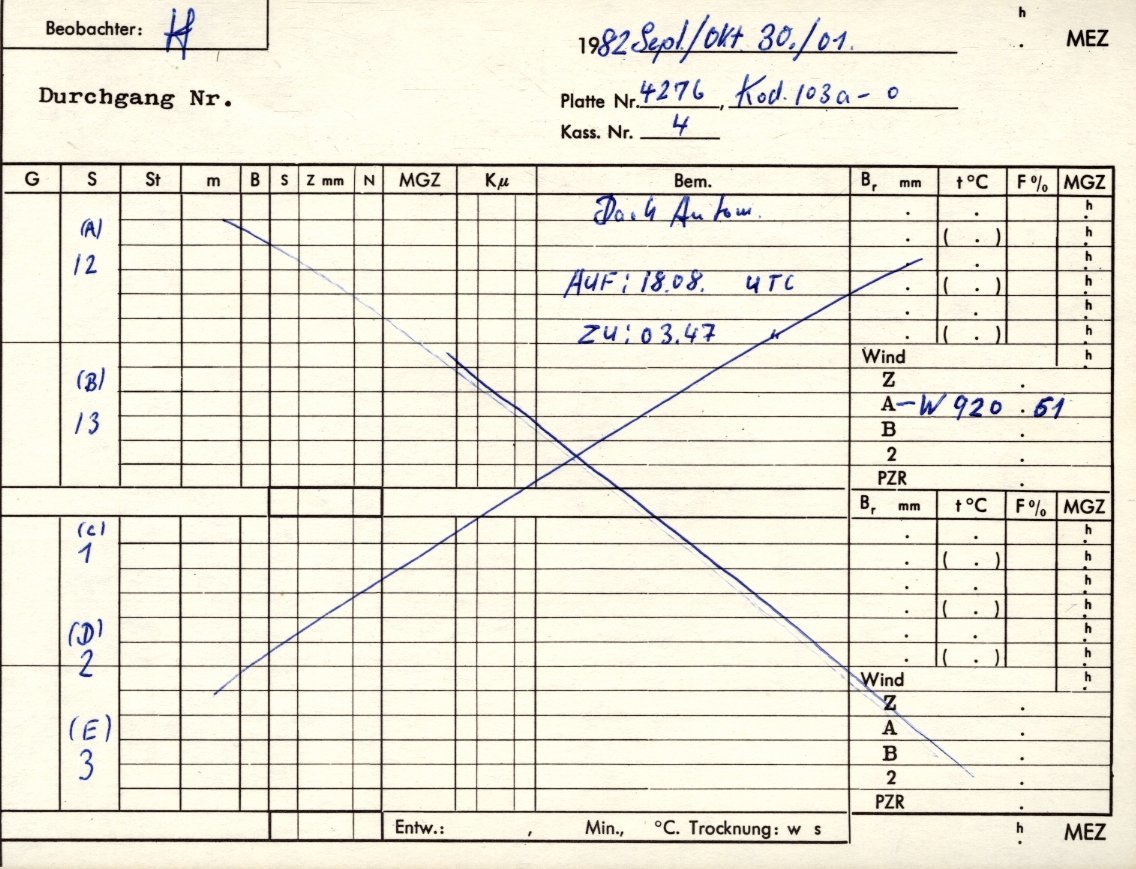 Beobachter: H
h
1982 Sept/Okt 30./01. . MEZ
Durchgang Nr.
Platte Nr. 4276, Kod. 103a-0
Kass. Nr. 4
G S St m B S Z mm N MGZ Kμ Bem. Br mm t °C F % MGZ
Dach Autom. . . h
(A) . ( . ) h
12 . . h
AUF: 18.08. UTC . ( . ) h
. . h
ZU: 03.47 " . ( . ) h
Wind h
(B) Z .
13 A -W 920 . 51
B .
2 .
PZR .
Br mm t °C F % MGZ
(C) . . h
1 . ( . ) h
. . h
. ( . ) h
(D) . . h
2 . ( . ) h
Wind h
Z .
(E) A .
3 B .
2 .
PZR .
Entw.: , Min., °C. Trocknung: w s h
. MEZ